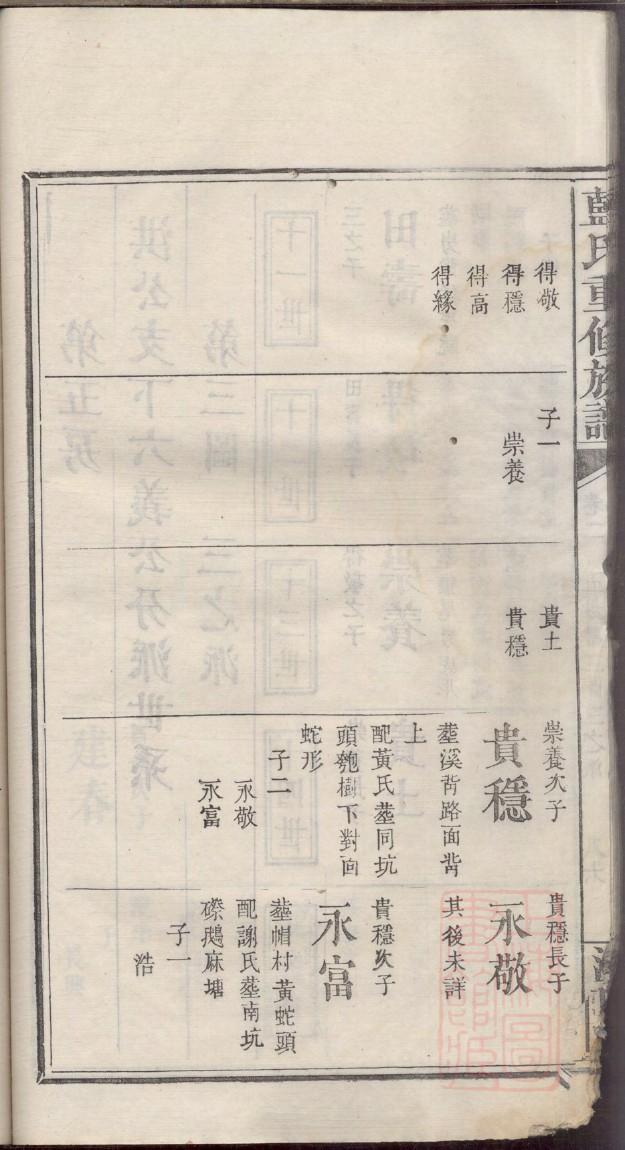 藍氏重修族譜
子得敬
得穩
得高
得緣
子一
崇養
貴土
貴穩
崇養次子
貴穩
塟溪背路面背
上
配黃氏塟同坑
頭樹下對面
蛇形
子二
永敬
永富
貴穩長子
永敬
其後未詳
貴穩次子
永富
塟帽村黃蛇頭
配謝氏塟南坑
磜鵝麻塘
子一
浩